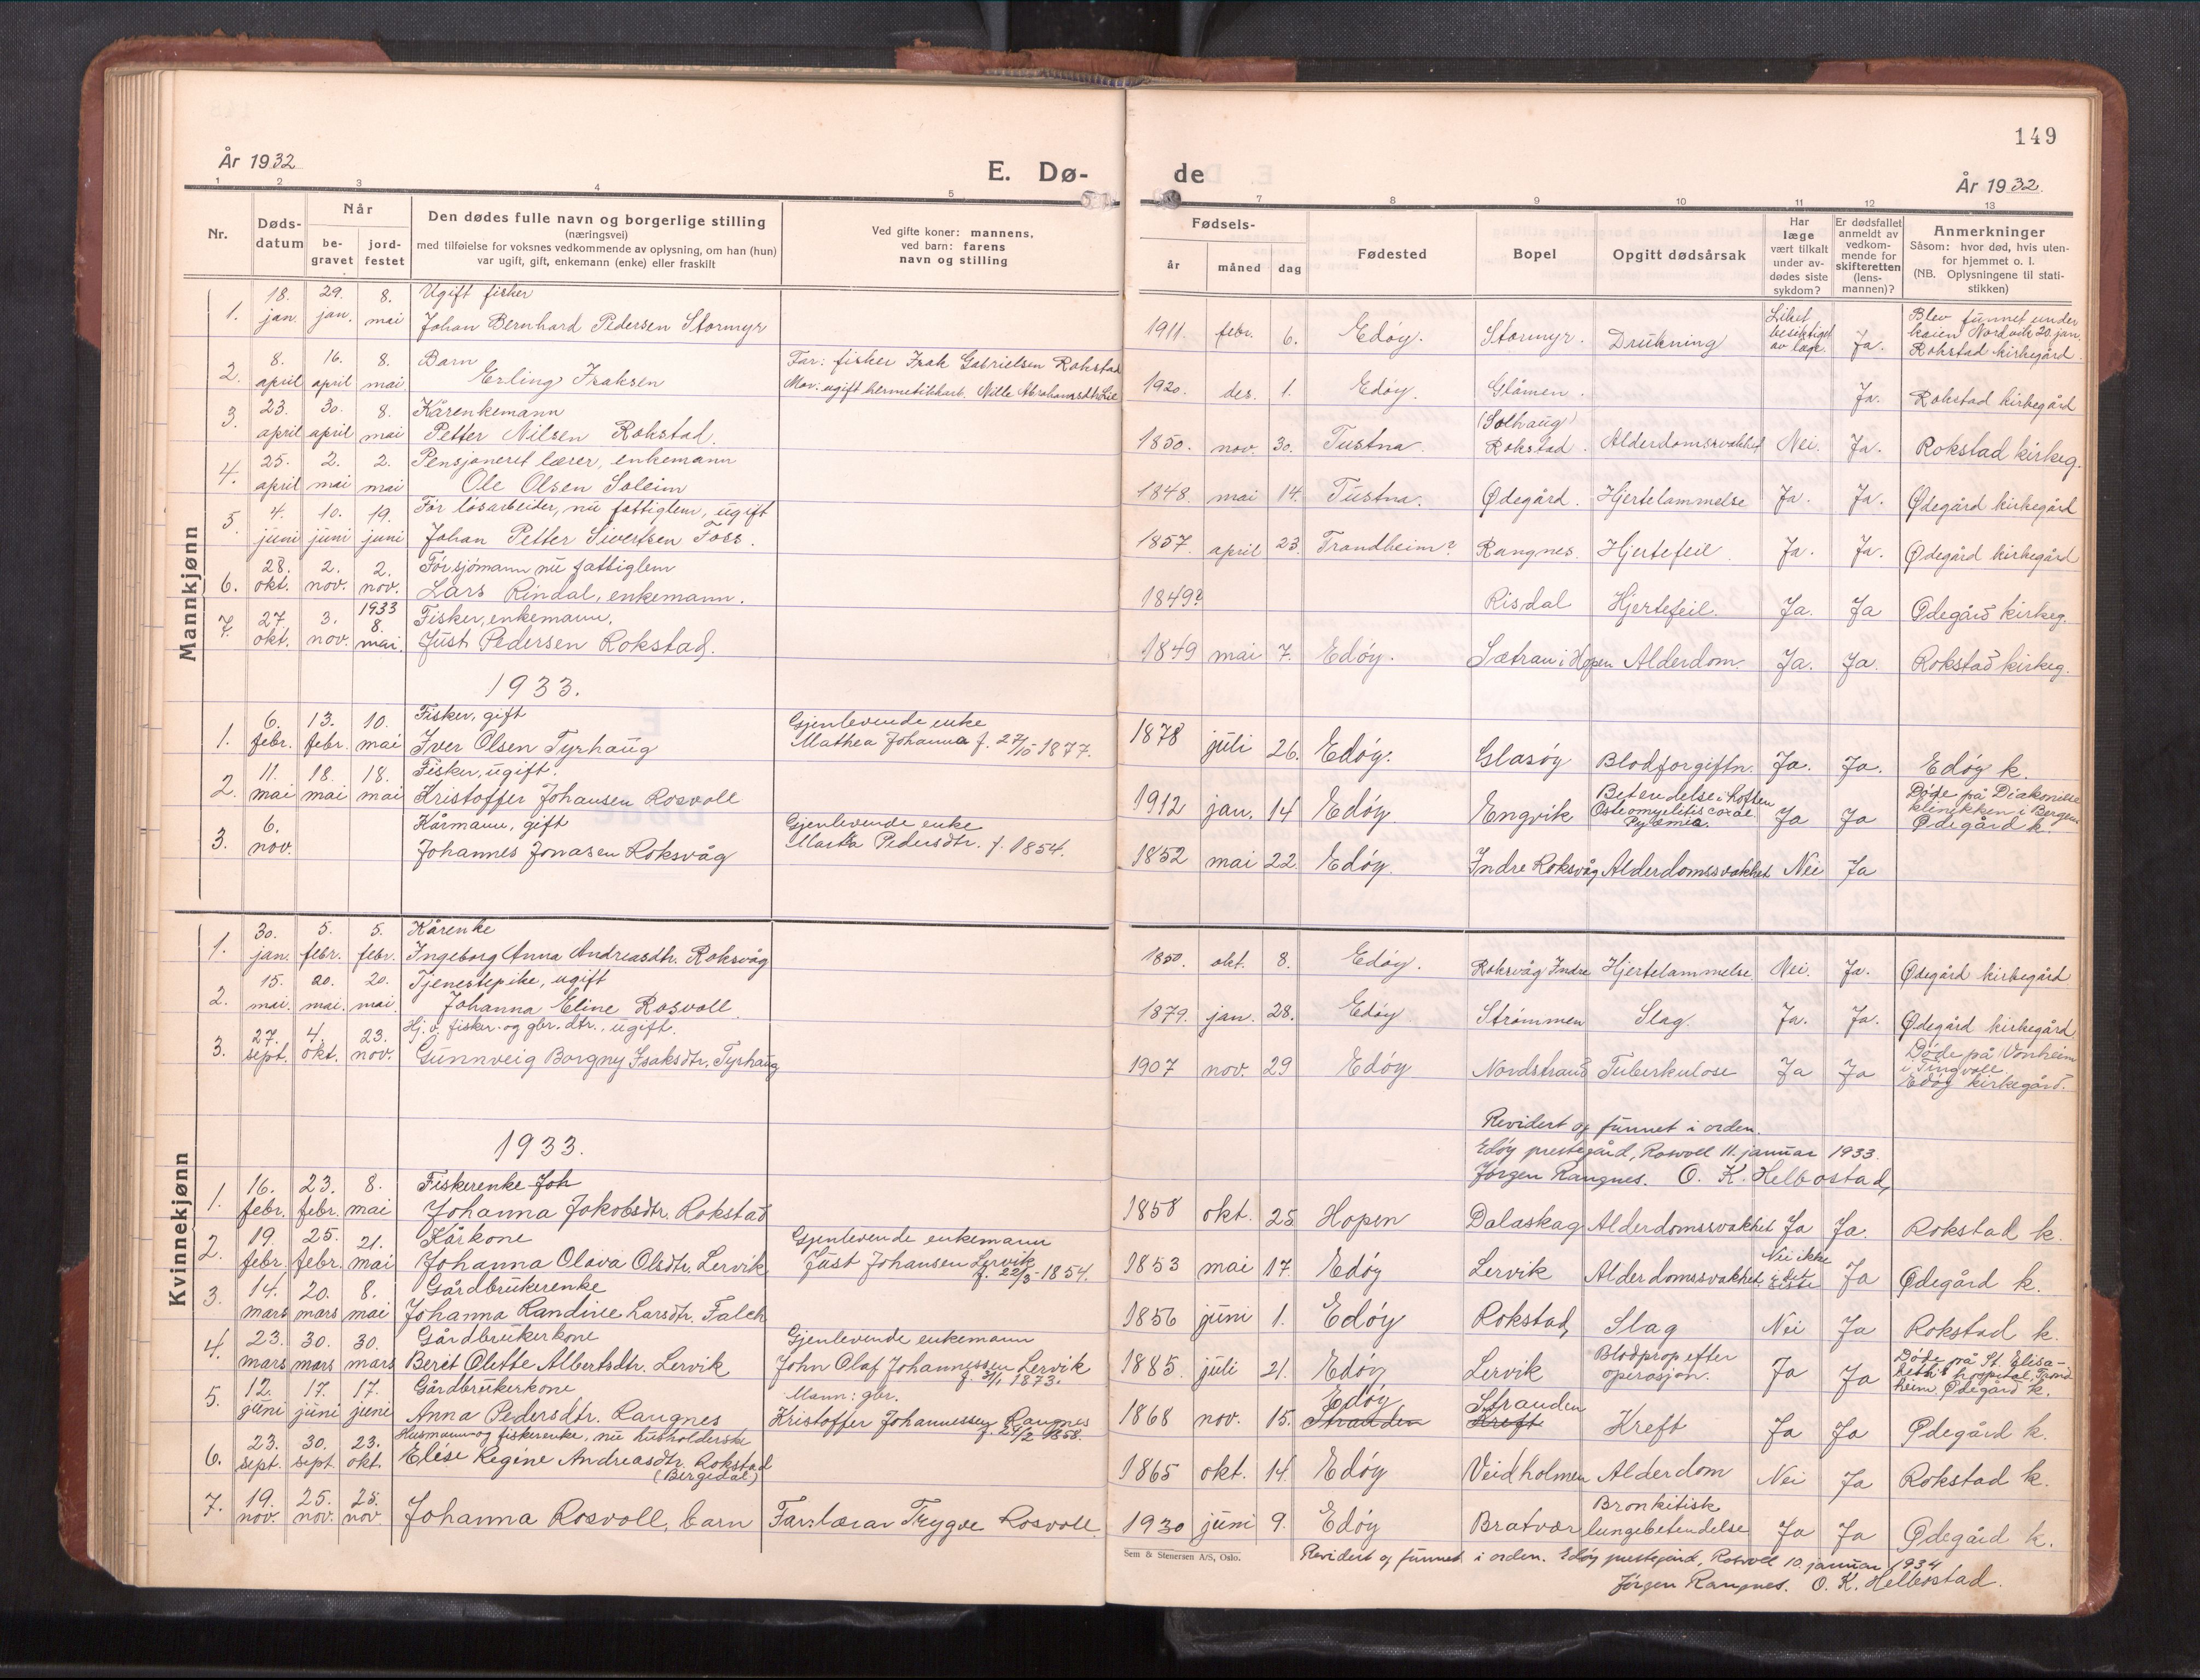 149
År 1932
E. Dø-
de
År 1932.
1 2 3 4 5 7 8 9 10 11 12 13
Nr.
Døds-
datum
Når
be-
gravet
jord-
festet
Den dødes fulle navn og borgerlige stilling
(næringsvei)
med tilføielse for voksnes vedkommende av oplysning, om han (hun)
var ugift, gift, enkemann (enke) eller fraskilt
Ved gifte koner: mannens,
ved barn: farens
navn og stilling
Fødsels-
år måned dag
Fødested
Bopel
Opgitt dødsårsak
Har
læge
vært tilkalt
under av-
dødes siste
sykdom?
Er dødsfallet
anmeldt av
vedkom-
mende for
skifteretten
(lens-
mannen)?
Anmerkninger
Såsom: hvor død, hvis uten-
for hjemmet o. l.
(NB. Oplysningene til stati-
stikken)
Mannkjønn
1. 18. jan. 29. jan. 8. mai Ugift fisker
Johan Bernhard Pedersen Stormyr
1911. febr. 6. Edøy. Stormyr. Drukning Liket besiktiget av læge. Ja. Blev funnet under
kaien Nordvik 20. jan.
Rokstad kirkegård.
2. 8. april 16. april 8. mai Barn
Erling Isaksen
Far: fisker Isak Gabrielsen Rokstad
Mor: ugift hermetikkarb. Nille Abrahamsdtr. Lie
1920. des. 1. Edøy. Glåmen. Ja. Rokstad kirkegård
3. 23. april 30. april 8. mai Kårenkemann
Petter Nilsen Rokstad.
1850. nov. 30. Tustna. (Solhaug) Rokstad. Alderdomssvakhet Nei. Ja. Rokstad kirkeg.
4. 25. april 2. mai 2. mai Pensjoneret lærer, enkemann
Ole Olsen Soleim
1848. mai 14. Tustna. Ødegård. Hjertelammelse Ja. Ja. Ødegård kirkegård
5. 4. juni 10. juni 19. juni Før løsarbeider, nu fattiglem, ugift
Johan Petter Sivertsen Foss.
1857. april 23. Trondheim? Rangnes. Hjertefeil Ja. Ja. Ødegård kirkegård
6. 28. okt. 2. nov. 2. nov. Før sjømann nu fattiglem
Lars Rindal, enkemann.
1849? Risdal Hjertefeil. Ja. Ja Ødegård kirkeg.
7. 27. okt. 3. nov. 1933 8. mai. Fisker, enkemann,
Just Pedersen Rokstad.
1849 mai 7. Edøy. Sætran i Hopen Alderdom. Ja. Ja. Rokstad kirkeg.
1933.
1. 6. febr. 13. febr. 10. mai Fisker, gift
Iver Olsen Tyrhaug
Gjenlevende enke
Mathea Johanna f. 27/10-1877.
1878 juli 26. Edøy. Glasøy Blodforgiftn. Ja. Ja. Edøy k.
2. 11. mai 18. mai 18. mai Fisker, ugift.
Kristoffer Johansen Rosvoll
1912 jan. 14 Edøy. Engvik Betendelse i hoften
Osteomyelitis coxae.
Pyæmia. Ja Ja Døde på Diakonisse
klinikken i Bergen
Ødegård k.
3. 6. nov. Kårmann, gift
Johannes Jonasen Roksvåg
Gjenlevende enke
Marta Pedersdtr. f. 1854.
1852 mai 22. Edøy. Indre Roksvåg Alderdomssvakhet Nei Ja
Kvinnekjønn
1. 30. jan. 5. febr. 5. febr. Kårenke
Ingeborg Anna Andreasdtr. Roksvåg
1850. okt. 8. Edøy. Roksvåg Indre Hjertelammelse. Nei. Ja. Ødegård kirkegård
2. 15. mai. 20. mai. 20. mai Tjenestepike, ugift
Johanna Eline Rosvoll.
1879. jan. 28. Edøy. Strømmen Slag. Ja. Ja. Ødegård kirkegård
3. 27. sept. 4. okt. 23. nov. Hj. v. fisker- og gbr. dtr., ugift.
Gunnveig Borgny Isaksdtr. Tyrhaug
1907 nov. 29 Edøy Nordstrand Tuberkulose Ja Ja Døde på Vonheim
i Tingvoll.
Edøy kirkegård.
Revidert og funnet i orden.
Edøy prestegård, Rosvoll 11. januar 1933.
Jørgen Rangnes. O. K. Helbostad,
1933.
1. 16. febr. 23. febr. 8. mai Fiskerenke Joh
Johanna Jakobsdtr. Rokstad
1858 okt. 25 Hopen Dalaskag Alderdomssvakhet Ja Ja. Rokstad k.
2. 19. febr. 25. febr. 21. mai Kårkone
Johanna Olava Olsdtr. Lervik
Gjenlevende enkemann
Just Johansen Lervik
f. 22/3-1854.
1853 mai 17. Edøy Lervik Alderdomssvakhet Nei ikke i det siste Ja Ødegård k.
3. 14. mars 20. mars 8. mai Gårdbrukerenke
Johanna Randine Larsdtr. Falch
1856 juni 1. Edøy Rokstad, Slag Nei Ja Rokstad k.
4. 23. mars 30. mars 30. mars Gårdbrukerkone
Berit Olette Albertsdtr. Lervik
Gjenlevende enkemann
John Olaf Johannessen Lervik
f. 31/1 1873.
1885 juli 21. Edøy Lervik Blodprop efter
operasjon. Ja Ja Døde på St. Elisa-
beth's hospital, Trond
heim Ødegård k.
5. 12. juni 17. juni 17. juni Gårdbrukerkone
Anna Pedersdtr. Rangnes
Mann: gbr.
Kristoffer Johannessen Rangnes
f. 24/2 1858.
1868 nov. 15. Edøy Stranden Stranden Kreft Kreft Ja Ja Ødegård k.
6. 23. sept. 30. sept 23. okt. Husmann- og fiskerenke, nu husholderske
Elise Regine Andreasdtr. Rokstad
(Bergedal)
1865 okt. 14. Edøy Veidholmen Alderdom Nei Ja Rokstad k.
7. 19. nov. 25. nov. 25. nov Johanna Rosvoll, barn Far: lærar Trygve Rosvoll.
1930 juni 9. Edøy Bratvær Bronkitisk
lungebetendelse Ja Ja Ødegård k.
Sem & Stenersen A/S, Oslo.
Revidert og funnet i orden. Edøy prestegård, Rosvoll 10. januar 1934
Jørgen Rangnes. O. K. Helbostad.